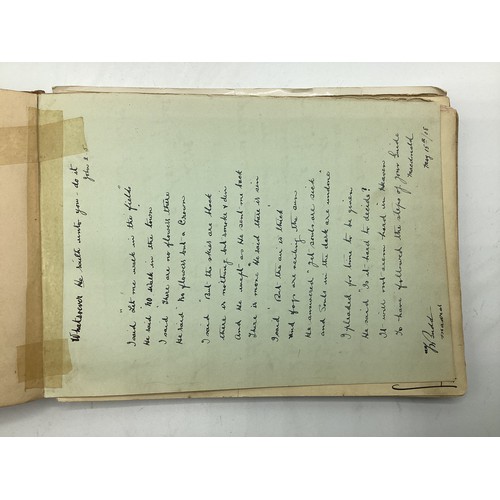 Whatsoever He saith unto you - do it
John 2. 5
I said "Let me walk in the fields"
He said "No walk in the town
I said "There are no flowers there
He said "No flowers but a Crown
I said But the skies are black
there is nothing but smoke & din
And He wept as He sent me back
There is more He said there is sin
I said But the air is thick
And fogs are veiling the sun
He answered yet souls are sick
and Souls in the dark are undone
I pleaded for time to be given
He said "Is it hard to decide?
It will not seem hard in Heaven
To have followed the steps of your Guide
Macdonald
Madras
May 15th 18